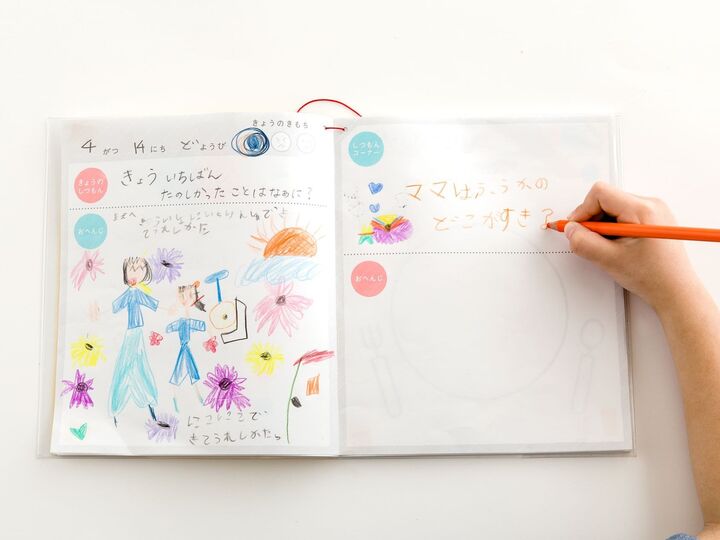 きょうのきもち
4 がつ 14 にち ど ようび
きょうの
しつもん
きょう いちばん
たのしかった ことは なぁに?
おへんじ
てうれしかた
にこにこで
きてうれしかたよ
しつもん
コーナー
ママは ふうかの
どこがすき?
おへんじ